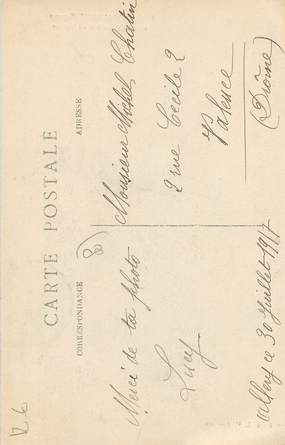 CARTE POSTALE
CORRESPONDANCE
ADRESSE
Merci de ta photo
Lucy
ce 30 Juillet 1917
Monsieur Michel Chatin
2 rue Cécile 2
Valence
(Drôme)